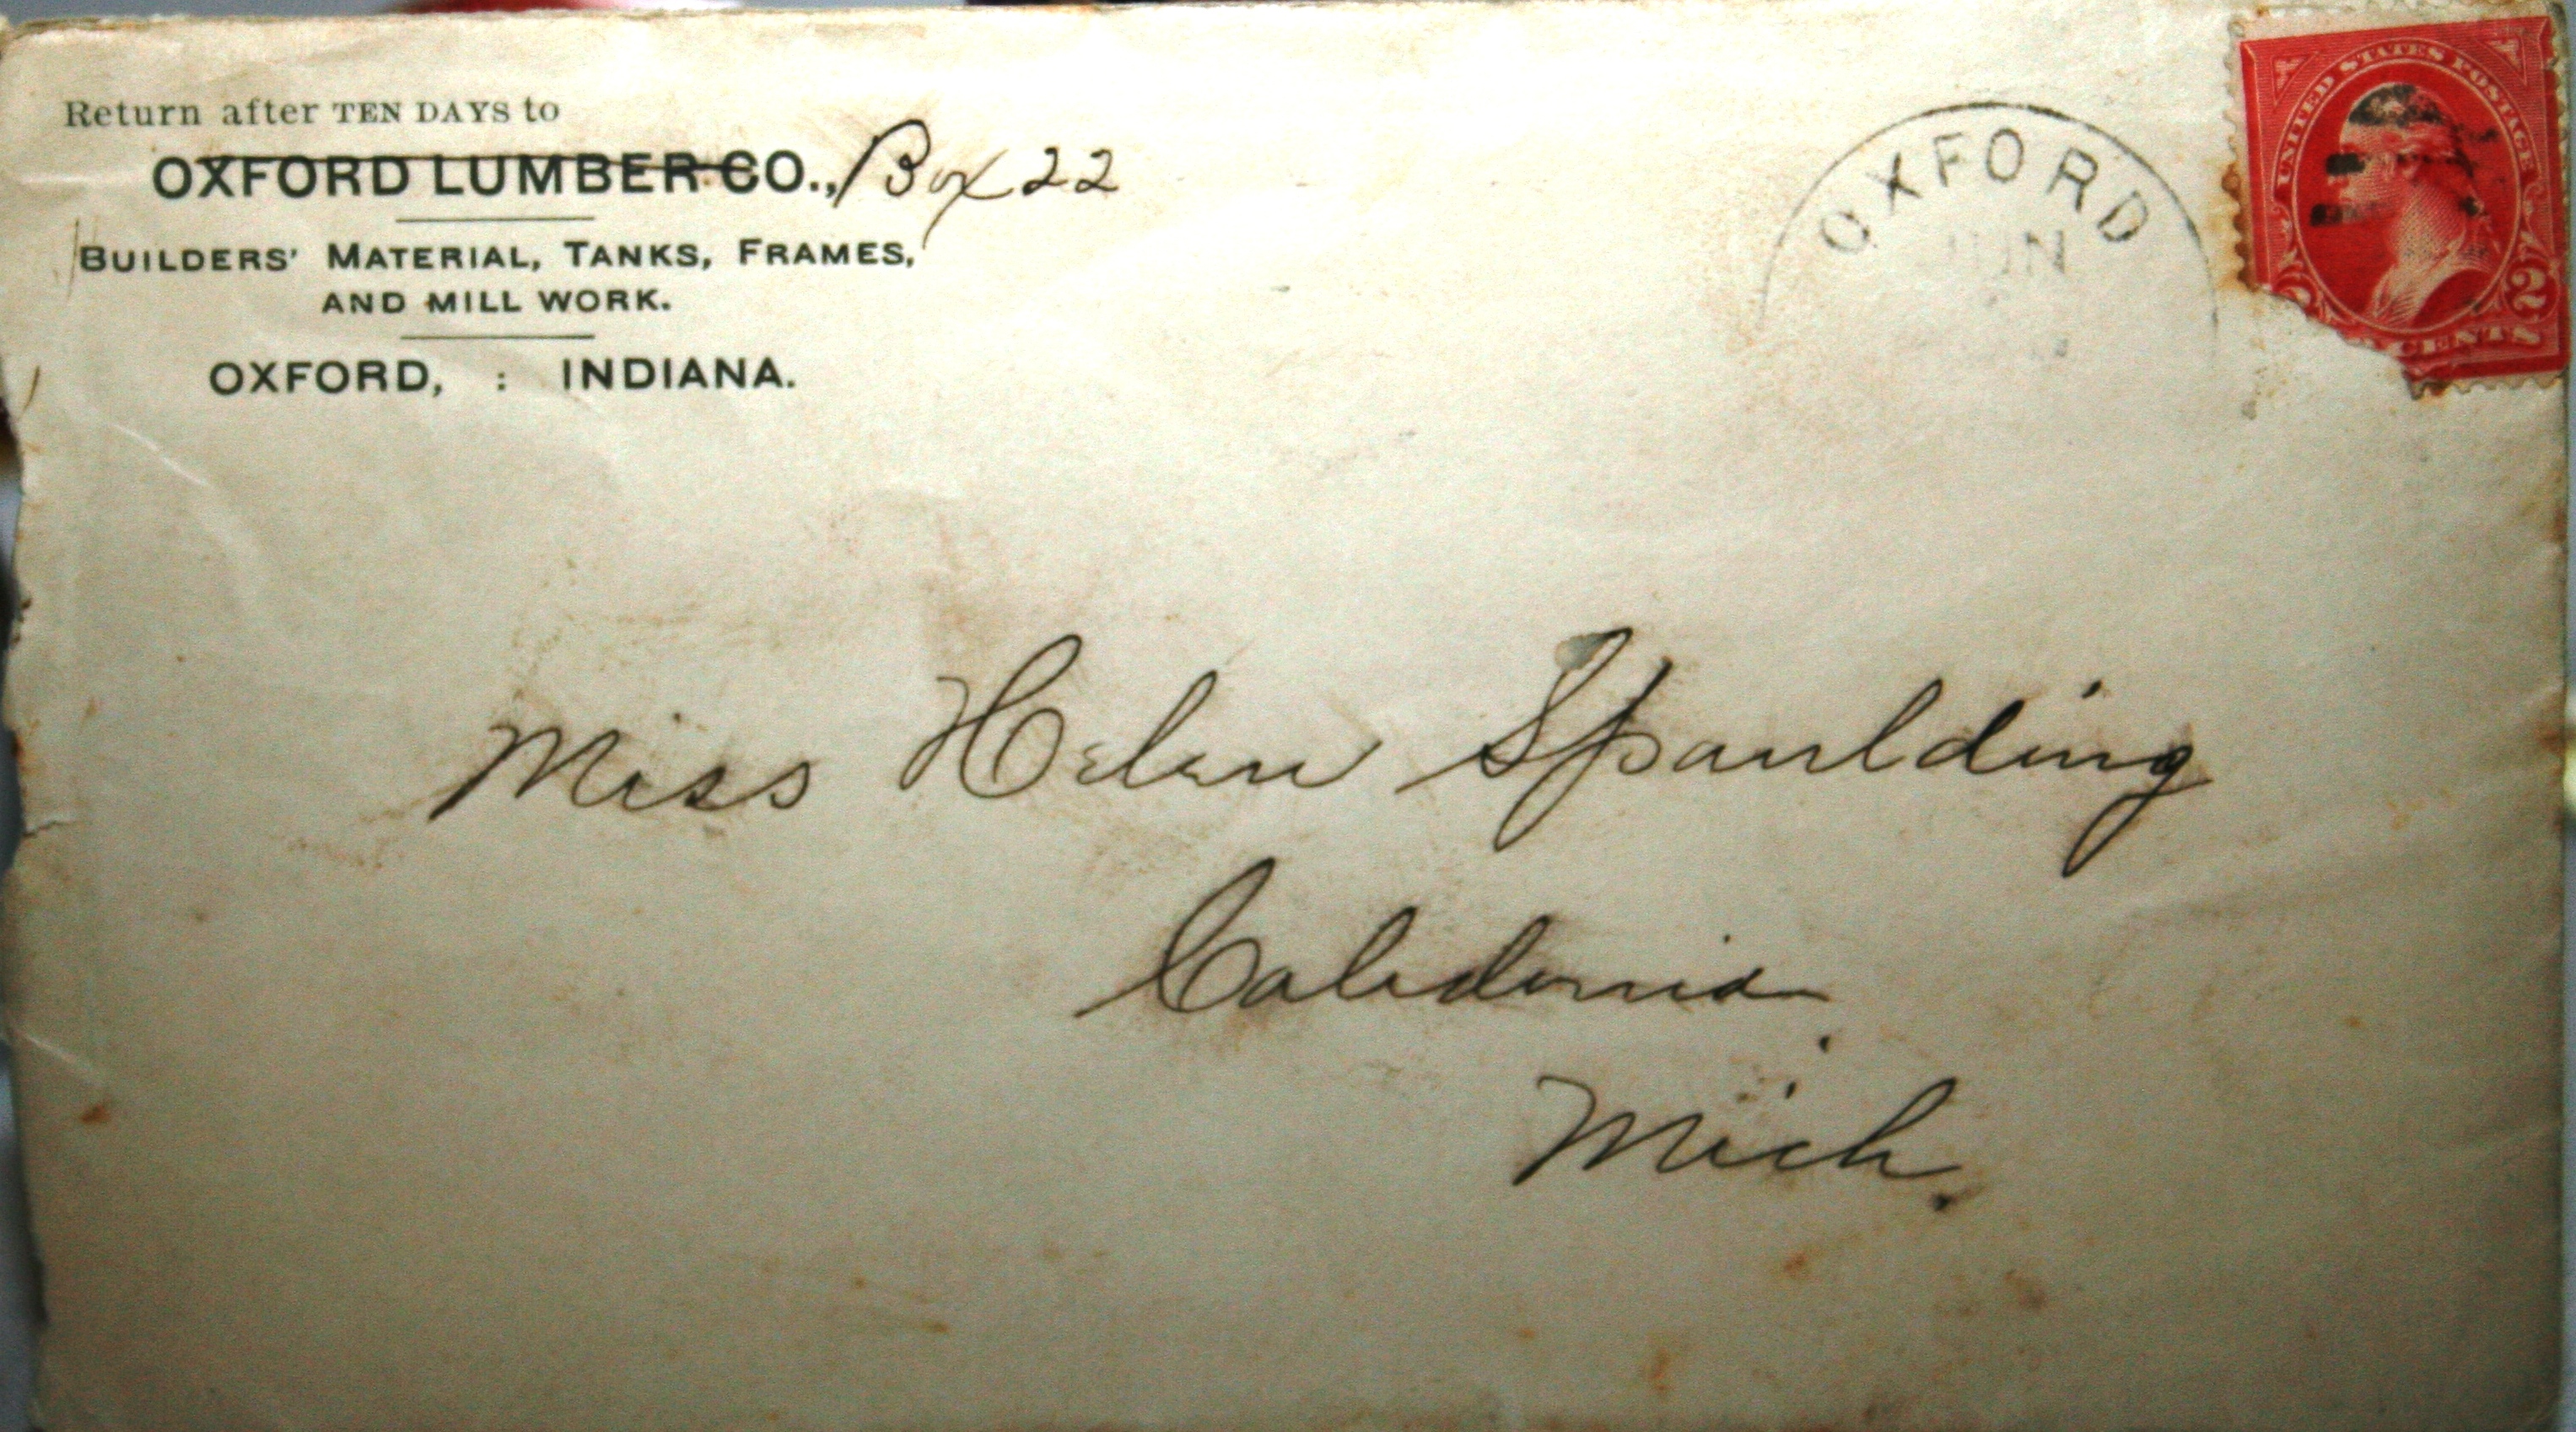 Return after TEN DAYS to
OXFORD LUMBER CO., Box 22
BUILDERS' MATERIAL, TANKS, FRAMES,
AND MILL WORK.
OXFORD, : INDIANA.
OXFORD
JUN
UNITED STATES POSTAGE
2
CENTS
Miss Helen Spaulding
Caledonia
Mich.